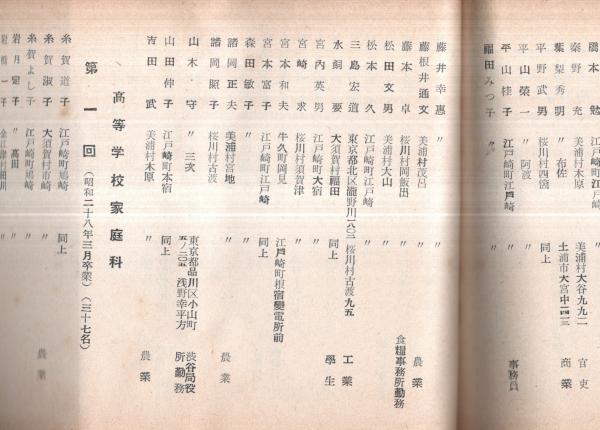 橋本 勉
秦野 充 〃 布佐 美浦村大谷九九二 官吏
葉梨秀明 美浦村木原 土浦市大宮中二四ノ三 商業
平野武男 桜川村四箇 同上
平山榮一 〃 阿波 〃
平山桂子 江戸崎町江戸崎 〃 事務員
福田みつ子 〃 〃
藤井幸惠 〃 〃
藤根井通文 美浦村茂呂 〃 農業
藤本卓 桜川村岡飯出 〃 食糧事務所勤務
松田文男 美浦村大山 〃
松本久 江戸崎町江戸崎 〃
三島宏道 東京都北区瀧野川一八三 桜川村古渡九五 工業
水飼要 大須賀村福田 同上 學生
宮内英男 江戸崎町大宿 〃
宮崎求 桜川村須賀津 〃
宮本和夫 牛久町岡見 江戸崎町根宿變電所前
宮本富子 江戸崎町江戸崎 同上
森田敏子 〃 〃
諸岡正夫 美浦村宮地 〃 農業
諸岡照子 桜川村古渡 〃
山木守 〃 三次 東京都品川区小山町五ノ二〇五 浅野幸平方 渋谷局役所勤務
山田伸子 江戸崎町本宿 同上
吉田武 美浦村木原 〃 農業
高等学校家庭科
第一回(昭和二十八年三月卒業)(三十七名)
糸賀道子 江戸崎町鳩崎 同上
糸賀淑子 大須賀村市崎 〃 農業
糸賀よし子 江戸崎町鳩崎 〃
岩月定子 〃 高田 〃
岩橋一子 金江津村細川 〃